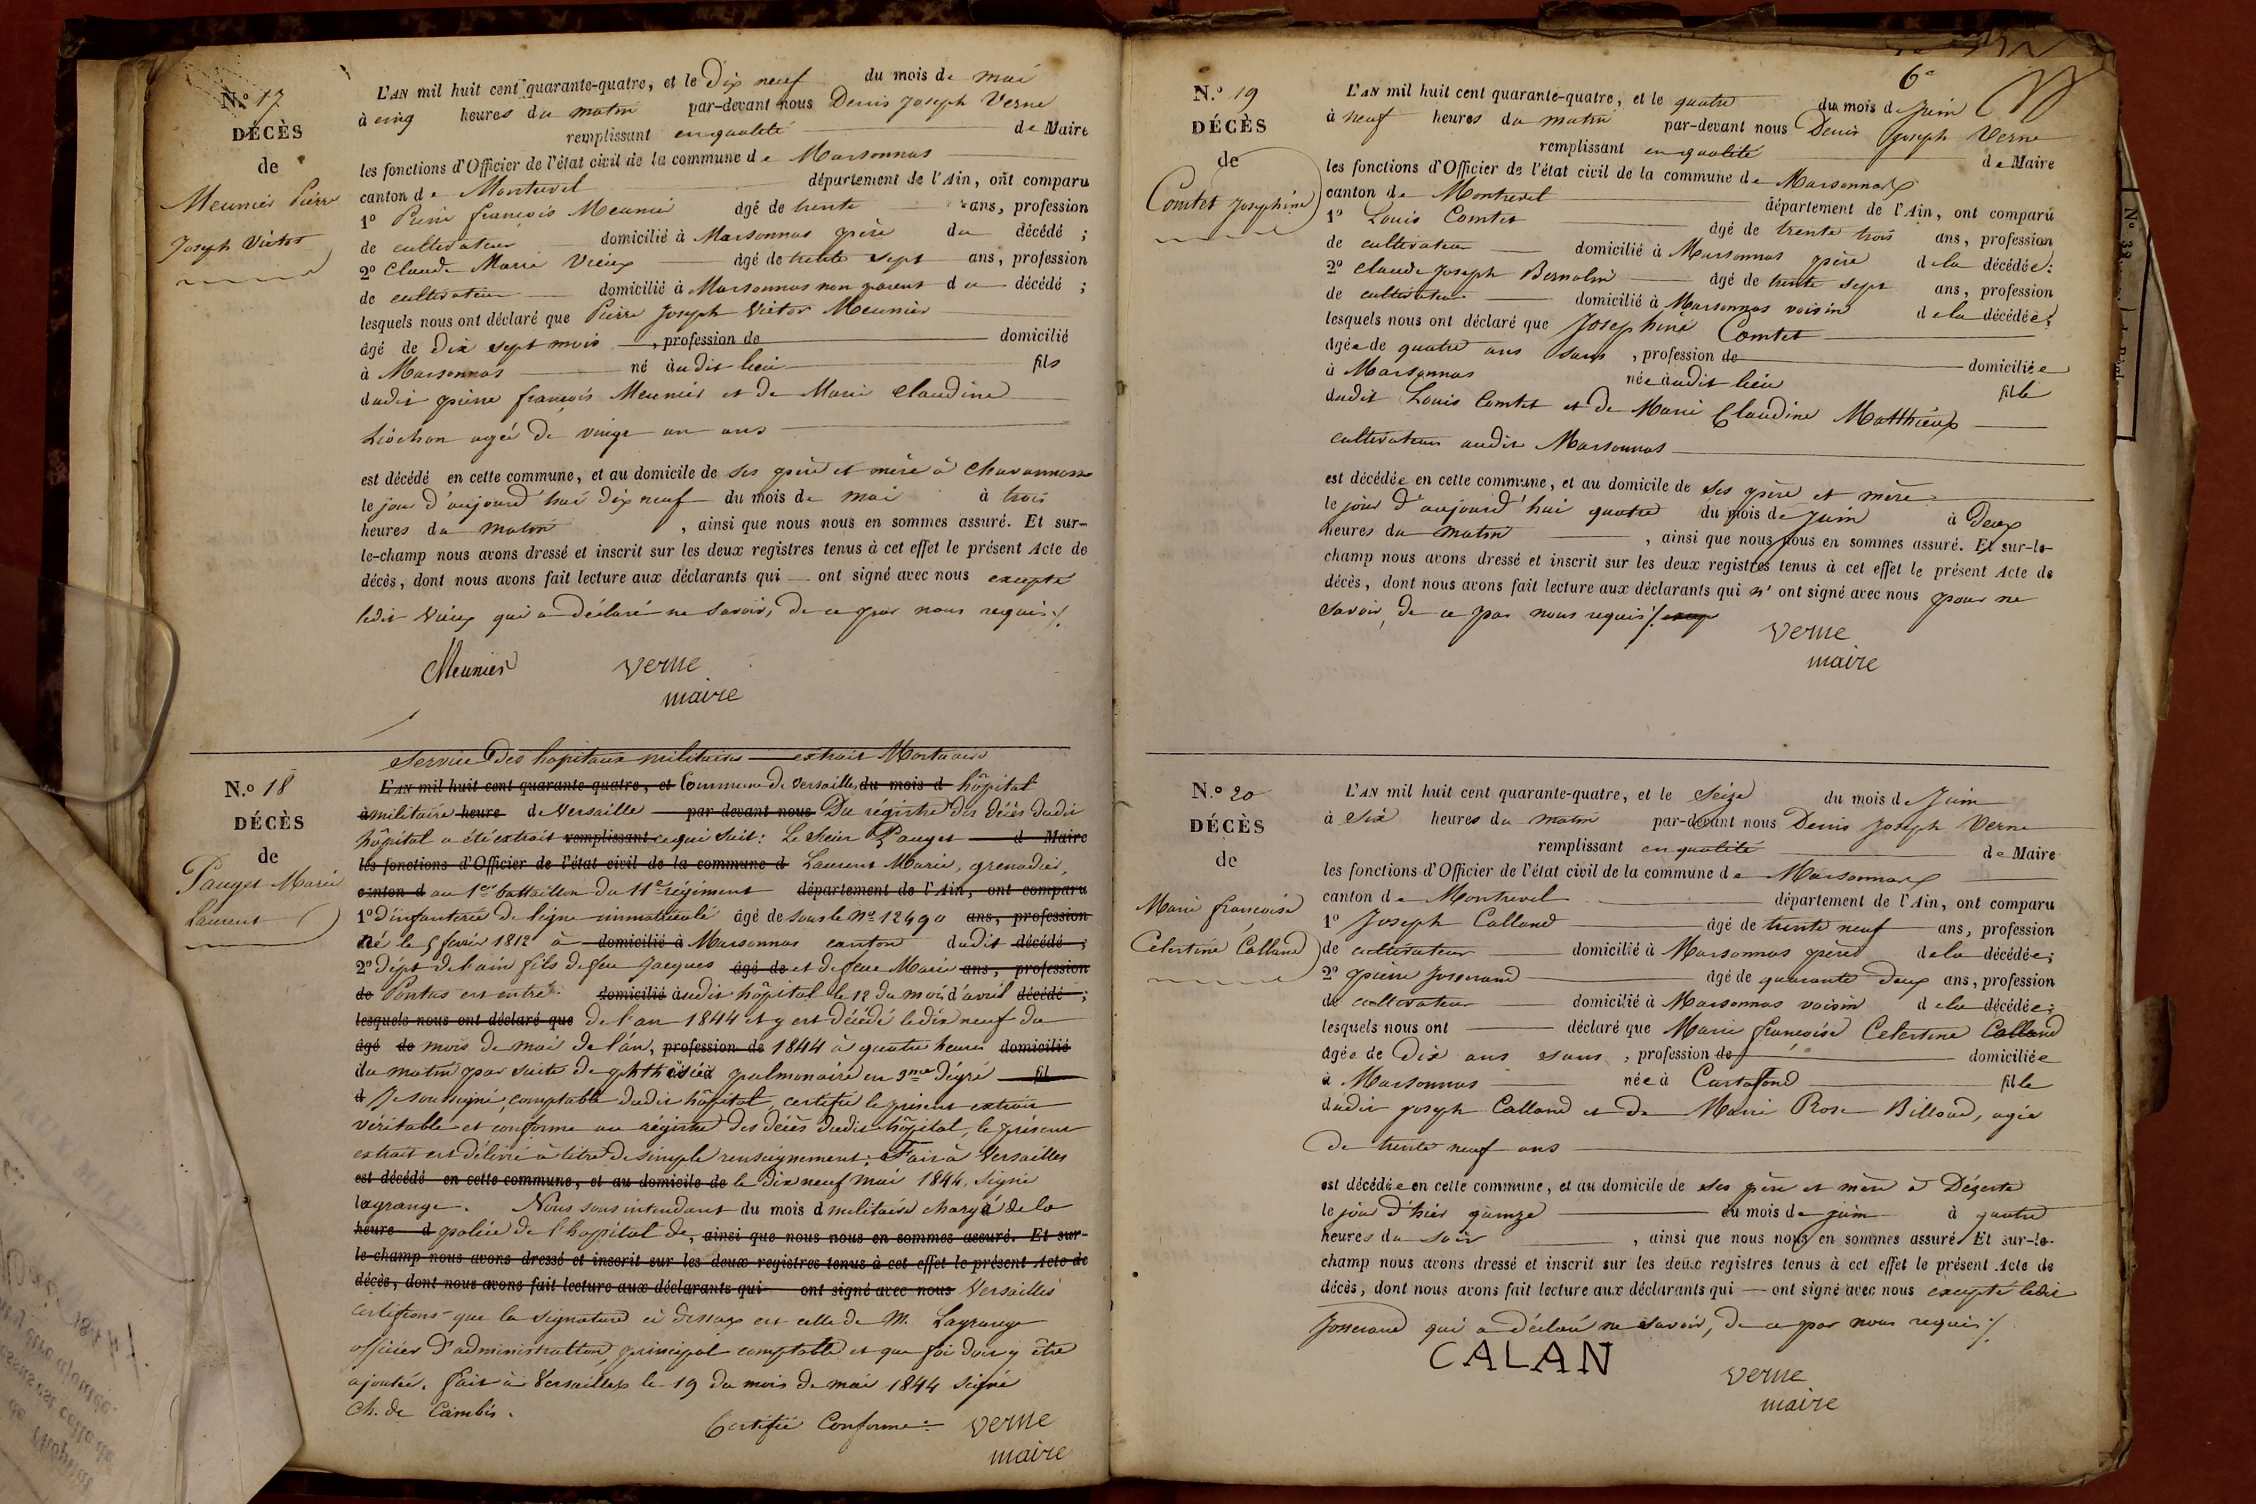 N.º 17
DÉCÈS
de
Meunier Pierre
Joseph Victor
L'AN mil huit cent quarante-quatre, et le Dix neuf du mois de mai
à cinq heures du matin par-devant nous Denis Joseph Verne
remplissant en qualité de Maire
les fonctions d'Officier de l'état civil de la commune de Marsonnas
canton de Montrevel département de l'Ain, ont comparu
1º Pierre françois Meunier âgé de trente ans, profession
de cultivateur domicilié à Marsonnas père du décédé ;
2º Claude Marie Vieux âgé de trente sept ans, profession
de cultivateur domicilié à Marsonnas non parent du décédé ;
lesquels nous ont déclaré que Pierre Joseph Victor Meunier
âgé de dix sept mois , profession de domicilié
à Marsonnas né audit lieu fils
dudit pierre françois Meunier et de Marie Claudine
Liochon agée de vingt un ans
est décédé en cette commune, et au domicile de ses père et mère à Chavannes
le jour d'aujourd'hui dix neuf du mois de mai à trois
heures du matin , ainsi que nous nous en sommes assuré. Et sur-
le-champ nous avons dressé et inscrit sur les deux registres tenus à cet effet le présent Acte de
décès, dont nous avons fait lecture aux déclarants qui ont signé avec nous excepté
ledit Vieux qui a déclaré ne savoir, de ce par nous requis
Meunier Verne
maire
N.º 18
DÉCÈS
de
Pauget Marie
Laurent
Service des hopitaux militaires extrait Mortuaire
L'AN mil huit cent quarante-quatre, et Commune de Versailles du mois d hôpital
à militaire heure de Versaille par devant nous Du régistre des décès dudit
hôpital a été extrait remplissant ce qui suit : Le Sieur Pauget d Maire
les fonctions d'Officier de l'état civil de la commune d Laurent Marie, grenadier,
canton d au 1er battaillon du 11e régiment département de l'Ain, ont comparu
1º d'infanterie de ligne immatriculé âgé de sous le Nº 12490 ans, profession
Né le 5 fevrier 1812 à domicilié à Marsonnas canton dudit décédé ;
2º dépt de l'ain fils de feu Jacques âgé de et de feue Marie ans, profession
de Pontus est entré domicilié audit hôpital le 12 du mois d'avril décédé ;
lesquels nous ont déclaré que de l'an 1844 et y est décédé le dix neuf du
âgé de mois de mai de l'an, profession de 1844 à quatre heures domicilié
du matin par suite de phthisie pulmonaire au 3me dégré fil
d Je soussigné, comptable dudit hôpital, certifie le présent extrait
véritable et conforme au régistre des décès dudit hôpital, le présent
extrait est délivré à titre de simple renseignement. Fait à Versailles
est décédé en cette commune, et au domicile de le dix neuf mai 1844, signé
lagrange. Nous sous intendant du mois d militaire chargé de la
heure d police de l'hopital de, ainsi que nous nous en sommes assuré. Et sur-
le-champ nous avons dressé et inscrit sur les deux registres tenus à cet effet le présent Acte de
décès, dont nous avons fait lecture aux déclarants qui ont signé avec nous Versailles
certifions que la signature ci dessus est celle de M. Lagrange
officier d'administration, principal comptable et que foi doit y être
ajoutée. fait à Versailles le 19 du mois de mai 1844 signé
Ch. de Cambis.
Certifié Conforme : Verne
maire
6e
N.º 19
DÉCÈS
de
Comtet Josephine
L'AN mil huit cent quarante-quatre, et le quatre du mois de Juin
à neuf heures du matin par-devant nous Denis Joseph Verne
remplissant en qualité de Maire
les fonctions d'Officier de l'état civil de la commune de Marsonnas
canton de Montrevel département de l'Ain, ont comparu
1º Louis Comtet âgé de trente trois ans, profession
de cultivateur domicilié à Marsonnas père de la décédée ;
2º Claude Joseph Bernolin âgé de trente sept ans, profession
de cultivateur domicilié à Marsonnas voisin de la décédée ;
lesquels nous ont déclaré que Josephine Comtet
âgée de quatre ans sans , profession de domiciliée
à Marsonnas née audit lieu fille
dudit Louis Comtet et de Marie Claudine Matthieux
cultivateurs audit Marsonnas
est décédée en cette commune, et au domicile de ses père et mère
le jour d'aujourd'hui quatre du mois de Juin à Deux
heures du matin , ainsi que nous nous en sommes assuré. Et sur-le-
champ nous avons dressé et inscrit sur les deux registres tenus à cet effet le présent Acte de
décès, dont nous avons fait lecture aux déclarants qui n' ont signé avec nous pour ne
savoir, de ce par nous requis
Verne
maire
N.º 20
DÉCÈS
de
Marie françoise
Celestine Calland
L'AN mil huit cent quarante-quatre, et le Seize du mois de Juin
à Six heures du matin par-devant nous Denis Joseph Verne
remplissant en qualité de Maire
les fonctions d'Officier de l'état civil de la commune de Marsonnas
canton de Montrevel département de l'Ain, ont comparu
1º Joseph Calland âgé de trente neuf ans, profession
de cultivateur domicilié à Marsonnas père de la décédée ;
2º pierre Josserand âgé de quarante deux ans, profession
de cultivateur domicilié à Marsonnas voisin de la décédée ;
lesquels nous ont déclaré que Marie françoise Celestine Calland
âgée de Dix ans sans , profession de domiciliée
à Marsonnas née à Curtafond fille
dudit joseph Calland et de Marie Rose Billoud, agée
de trente neuf ans
est décédée en cette commune, et au domicile de ses père et mère à Dézerte
le jour d'hier quinze du mois de juin à quatre
heures du soir , ainsi que nous nous en sommes assuré. Et sur-le-
champ nous avons dressé et inscrit sur les deux registres tenus à cet effet le présent Acte de
décès, dont nous avons fait lecture aux déclarants qui ont signé avec nous excepté ledit
Josserand qui a déclaré ne savoir, de ce par nous requis
CALAN Verne
maire